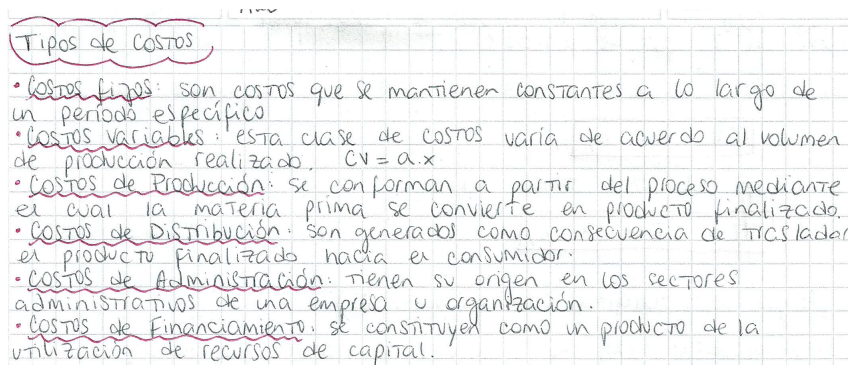 Tipos de Costos
• Costos fijos: son costos que se mantienen constantes a lo largo de
un periodo específico
• Costos variables: esta clase de costos varía de acuerdo al volumen
de producción realizado. CV = a.x
• Costos de Producción: se conforman a partir del proceso mediante
el cual la materia prima se convierte en producto finalizado.
• Costos de Distribución: son generados como consecuencia de trasladar
el producto finalizado hacia el consumidor.
• Costos de Administración: tienen su origen en los sectores
administrativos de una empresa u organización.
• Costos de Financiamiento: se constituyen como un producto de la
utilización de recursos de capital.